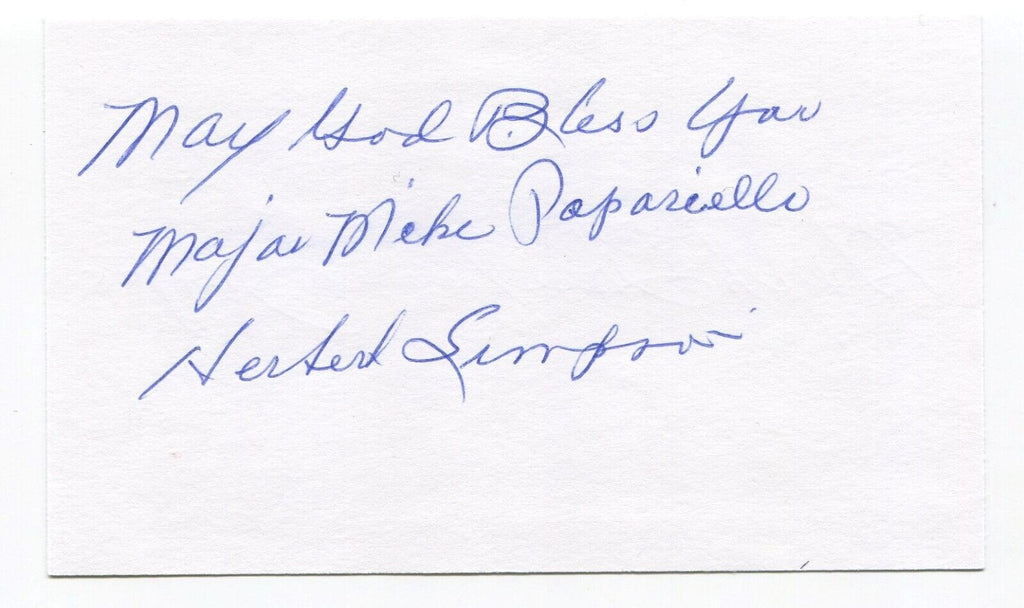 May God Bless You
Major Mike Papariello
Herbert Simpson